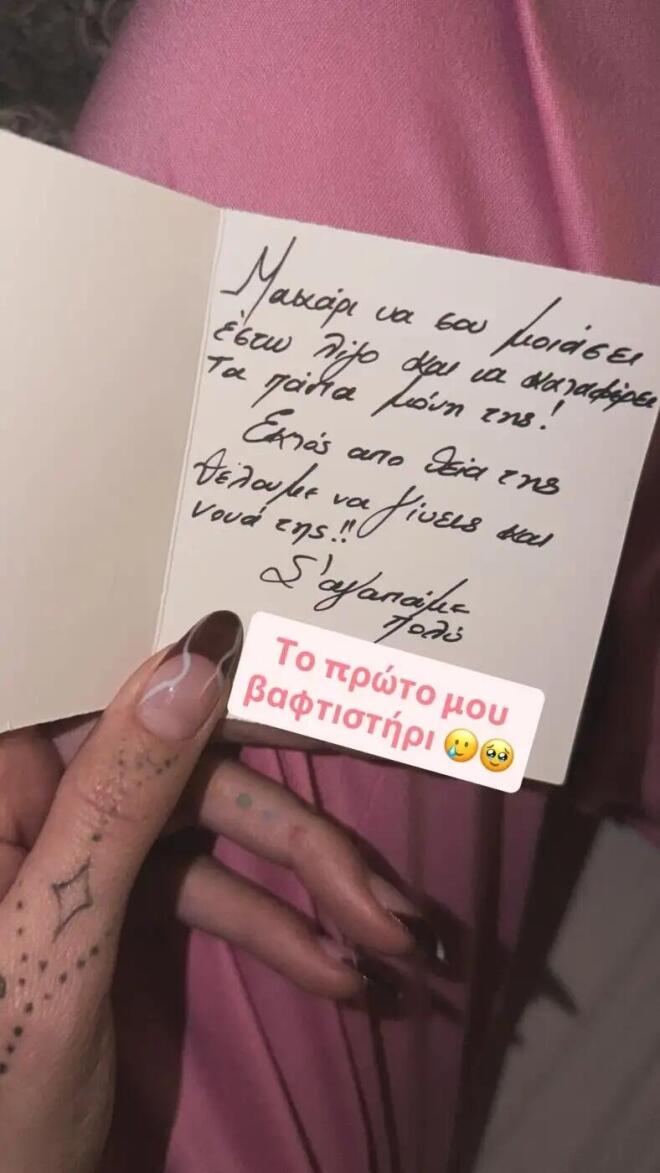 Μακάρι να σου μοιάσει
έστω λίγο και να καταφέρει
τα πάντα μόνη της!
Εκτός απο θεία της
θέλουμε να γίνεις και
νονά της!!
Σ'αγαπάμε
πολύ
Το πρώτο μου
βαφτιστήρι 🥲🥹